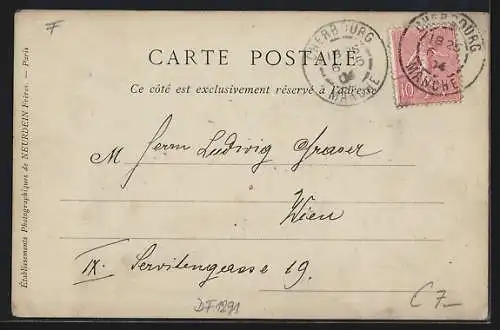 F
CARTE POSTALE
Ce côté est exclusivement réservé à l'adresse
CHERBOURG
MANCHE
CHERBOURG
18 25
04
MANCHE
10
M Herrn Ludwig Graser
Wien
IX. Servitengasse 19.
DF1291
C 7-
Établissements Photographiques de NEURDEIN Frères. — Paris